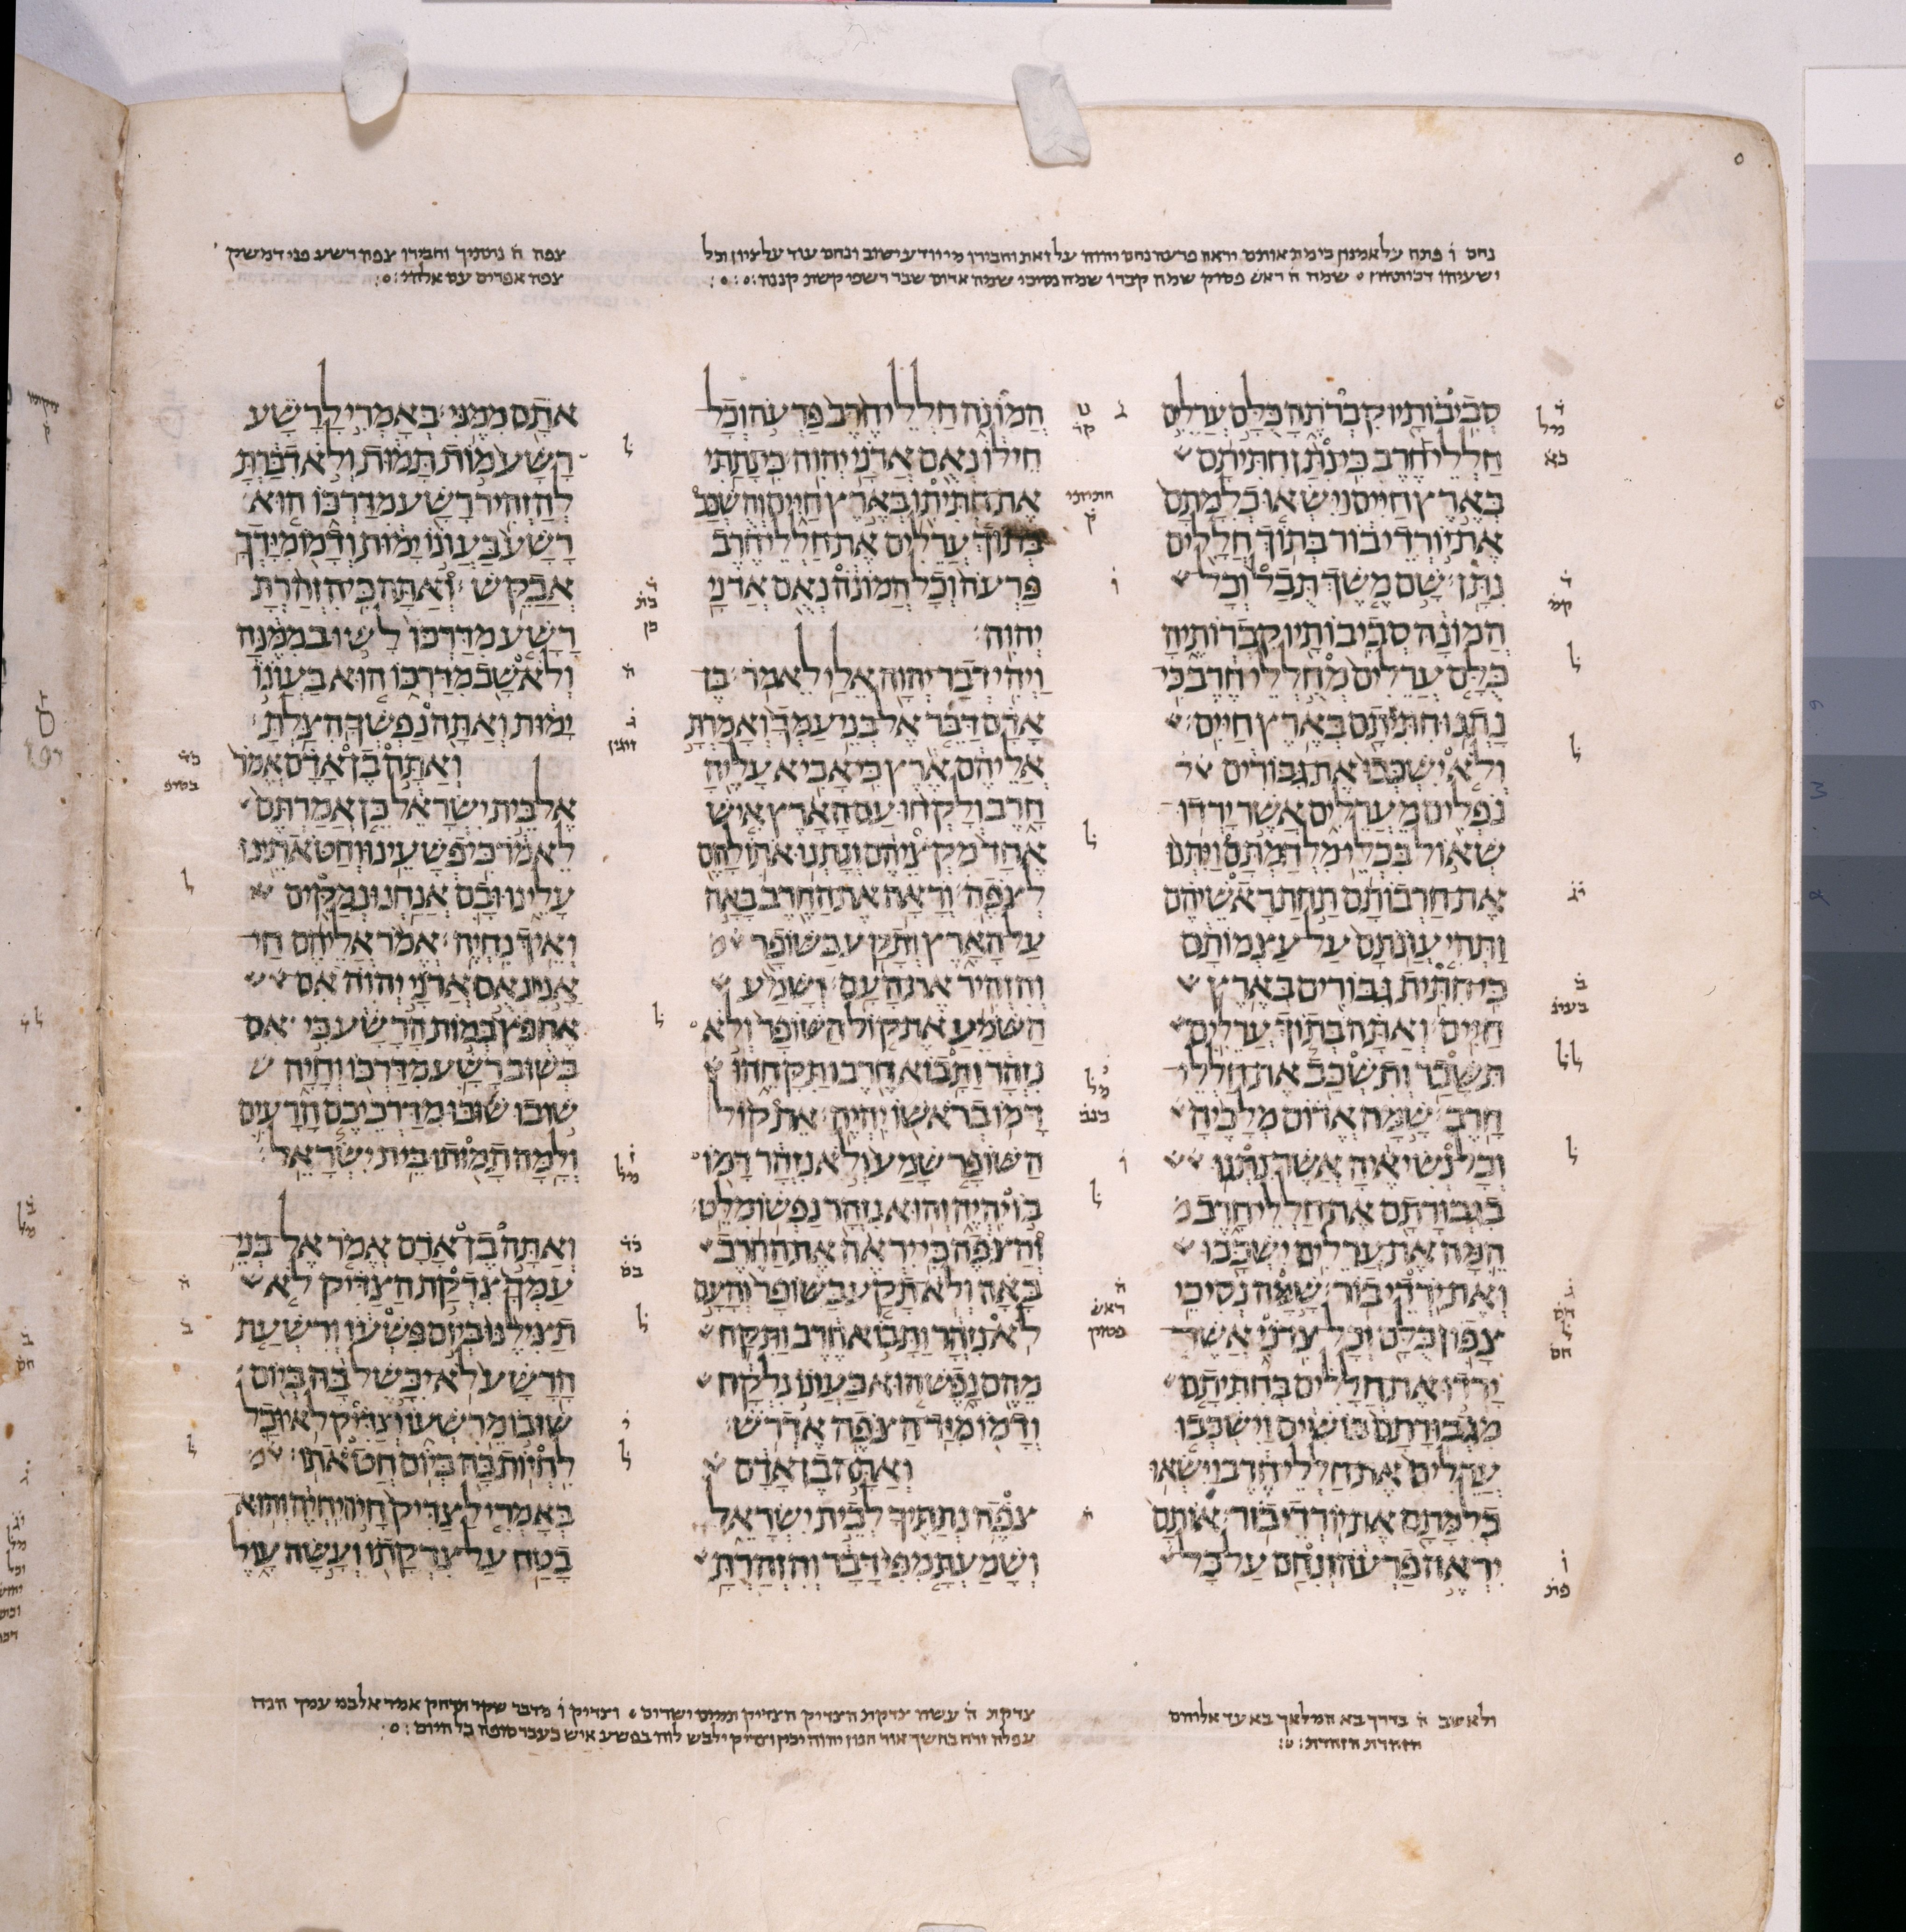 נחם ו פתח על אמנון כי מת אותם יראה פרעה נחם יהוה על זאת וחבירו מי יודע ישוב ונחם עוד על ציון וכל
ישעיהו דכותהון שמה ה ראש פסוק שמה קברו שמה נסיכי שמה אדום שבר רשפי קשת קננה
צפה ה נתתיך וחבירו צפה רשע פני דמשק
צפה אפרים עם אלהי
סביבותיו קברתה כלם ערלים
חללי חרב כי נתן חתיתם
בארץ חיים וישאו כלמתם
את יורדי בור בתוך חללים
נתן שם משך תבל וכל
המונה סביבותיו קברותיה
כלם ערלים מחללי חרב כי
נתנו חתיתם בארץ חיים
ולא ישכבו את גבורים
נפלים מערלים אשר ירדו
שאול בכלי מלחמתם ויתנו
את חרבותם תחת ראשיהם
ותהי עונתם על עצמותם
כי חתית גבורים בארץ
חיים ואתה בתוך ערלים
תשבר ותשכב את חללי
חרב שמה אדום מלכיה
וכל נשיאיה אשר נתנו
בגבורתם את חללי חרב
המה את ערלים ישכבו
ואת ירדי בור שמה נסיכי
צפון כלם וכל צדני אשר
ירדו את חללים בחתיתם
מגבורתם בושים וישכבו
ערלים את חללי חרב וישאו
כלמתם את יורדי בור אותם
יראה פרעה ונחם על כל
המונה חללי חרב פרעה וכל
חילו נאם אדני יהוה כי נתתי
את חתיתו בארץ חיים והשכב
בתוך ערלים את חללי חרב
פרעה וכל המונה נאם אדני
יהוה
ויהי דבר יהוה אלי לאמר בן
אדם דבר אל בני עמך ואמרת
אליהם ארץ כי אביא עליה
חרב ולקחו עם הארץ איש
אחד מקציהם ונתנו אתו להם
לצפה וראה את החרב באה
על הארץ ותקע בשופר
והזהיר את העם ושמע
השמע את קול השופר ולא
נזהר ותבוא חרב ותקחהו
דמו בראשו יהיה את קול
השופר שמע ולא נזהר דמו
בו יהיה והוא נזהר נפשו מלט
והצפה כי יראה את החרב
באה ולא תקע בשופר והעם
לא נזהר ותבוא חרב ותקח
מהם נפש הוא בעונו נלקח
ודמו מיד הצפה אדרש
ואתה בן אדם
צפה נתתיך לבית ישראל
ושמעת מפי דבר והזהרת
אתם ממני באמרי לרשע
רשע מות תמות ולא דברת
להזהיר רשע מדרכו הוא
רשע בעונו ימות ודמו מידך
אבקש ואתה כי הזהרת
רשע מדרכו לשוב ממנה
ולא שב מדרכו הוא בעונו
ימות ואתה נפשך הצלת
ואתה בן אדם אמר
אל בית ישראל כן אמרתם
לאמר כי פשעינו וחטאתינו
עלינו ובם אנחנו נמקים
ואיך נחיה אמר אליהם חי
אני נאם אדני יהוה אם
אחפץ במות הרשע כי אם
בשוב רשע מדרכו וחיה
שובו שובו מדרכיכם הרעים
ולמה תמותו בית ישראל
ואתה בן אדם אמר אל בני
עמך צדקת הצדיק לא
תצילנו ביום פשעו ורשעת
הרשע לא יכשל בה ביום
שובו מרשעו וצדיק לא יוכל
לחיות בה ביום חטאתו
באמרי לצדיק חיה יחיה והוא
בטח על צדקתו ועשה עול
ולא שב ה בדרך בא המלאך בא עד אלוהים
הזהרת הזהרת
צדקת ה עשה צדקת הצדיק הצדיק תמים ישרים וצדיק ו מדבר שקר תרחק אמר אל בני עמך הנה
עפלה זרח בחשך אור חנון יהוה יכין וצדיק ילבש לוז בפשע איש כעבר סופה כל היום